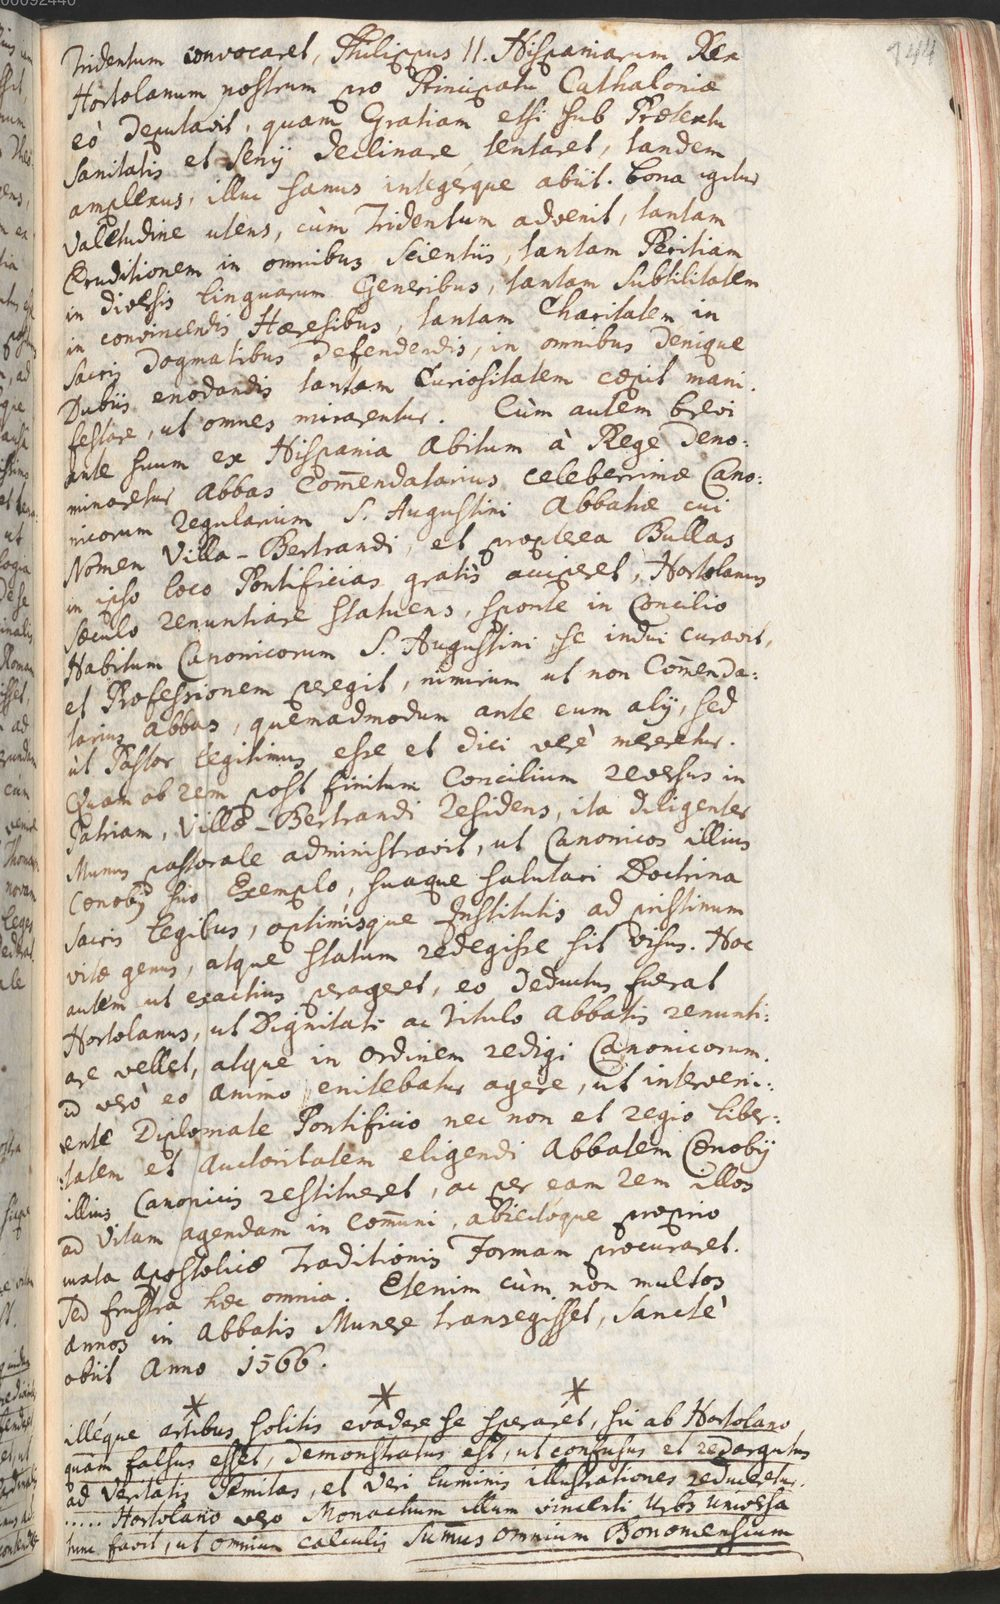 144
Tridentum convocaret, Philippus II. Hispaniarum Rex
Hortolanum nostrum pro Principatu Cathaloniæ
eò deputavit, quam Gratiam etsi sub Prætextu
Sanitatis et Senij declinare tentaret, tandem
amplexus, illuc sanus integérque abiit. Bona igitur
Valetudine utens, cùm Tridentum advenit, tantam
Eruditionem in omnibus Scientiis, tantam Peritiam
in diversis linguarum Generibus, tantam Subtilitatem
in convincendis Hæresibus, tantam Charitatem in
Sacris Dogmatibus defendendis, in omnibus denique
Dubiis enodandis tantam Curiositatem cœpit mani.
festare, ut omnes mirarentur. Cùm autem brevi
ante suum ex Hispania Abitum à Rege deno:
minaretur Abbas Com̄endatarius celeberrimæ Cano:
nicorum Regularium S. Augustini Abbatiæ cui
Nomen Villa-Bertrandi, et propterea Bullas
in ipso loco Pontificias gratìs acciperet, Hortolanus
Sæculo renuntiare statuens, sponte in Concilio
Habitum Canonicorum S. Augustini se indui curavit,
et Professionem peregit, nimirum ut non Com̄enda:
tarius Abbas, quemadmodum ante eum alij, sed
ùt Pastor legitimus esse et dici verè meretur.
Quam ob rem post finitum Concilium reversus in
Patriam, Villæ-Bertrandi residens, ita diligenter
Munus pastorale administravit, ut Canonicos illius
Cœnobij suo Exemplo, suaque salutari Doctrina
Sacris legibus, optimisque Institutis ad pristinum
vitæ genus, atque statum redegisse sit visus. Hoc
autem ut exactius perageret, eo deductus fuerat
Hortolanus, ut Dignitati ac titulo Abbatis renunti:
are vellet, atque in Ordinem redigi Canonicorum.
id verò eo animo enitebatur agere, ut interveni:
ente Diplomate Pontificio nec non et regio liber:
tatem et Auctoritatem eligendi Abbatem Cœnobij
illius Canonicis restitueret, ac per eam rem illos
ad vitam agendam in com̄uni, abiectóque proprio
iuxta Apostolicæ Traditionis Formam procuraret.
Sed frustra hæc omnia. Etenim cùm non multos
annos in Abbatis Munere transegisset, Sanctè
obiit Anno 1566.
* * *
illéque artibus solitis evadere se speraret, sic ab Hortolano
quam falsus esset, demonstratus est, ut confusus et redargutus
ad Veritatis Semitas, et Veri luminis illustrationes reduceretur.
..... Hortolano vero Monachum illum vincenti Urbs Universa
tunc favit, ut omnium calculis Sum̄us omnium Bononiensium